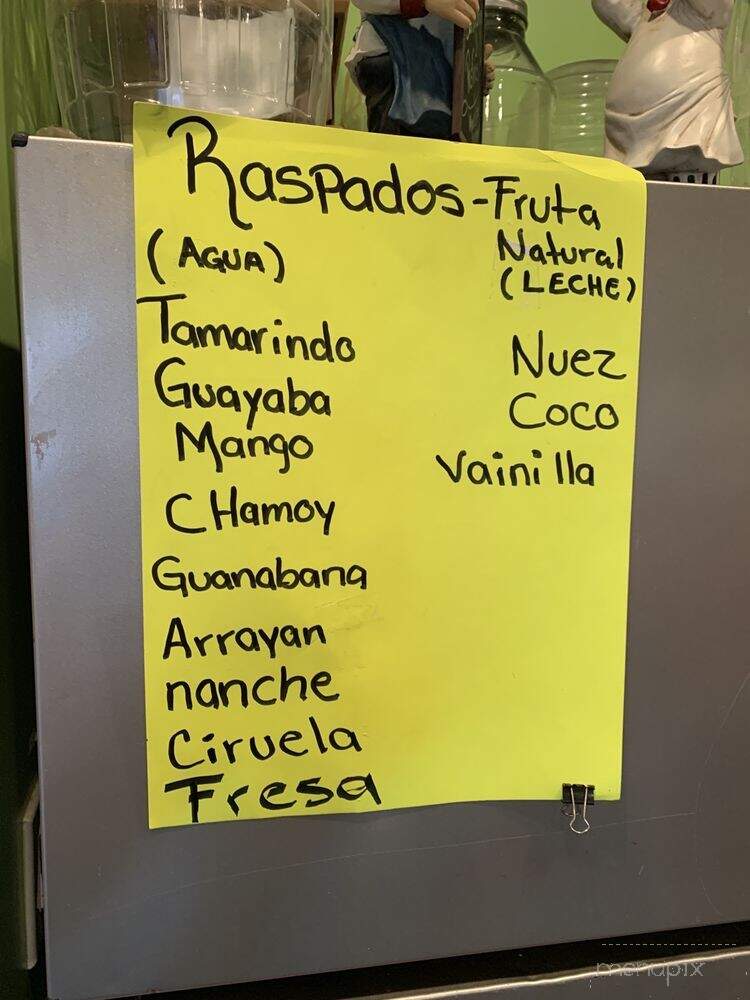 Raspados - Fruta
Natural
(AGUA)
(LECHE)
Tamarindo
Guayaba
Mango
CHamoy
Guanabana
Arrayan
nanche
Ciruela
Fresa
Nuez
Coco
Vainilla
menapix